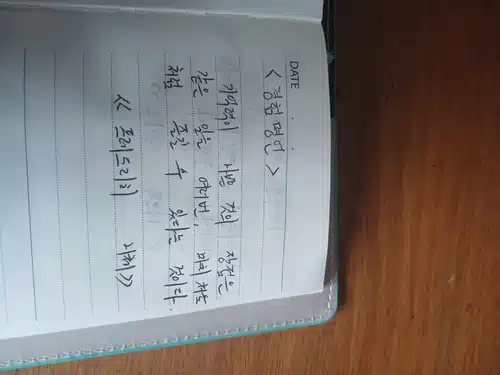 DATE . .
< 경험 명언 >
기억력이 나쁜 것의 장점은
같은 일을 여러번, 마치 처음
처럼 즐길 수 있다는 것이다.
《 프리드리히 니체》